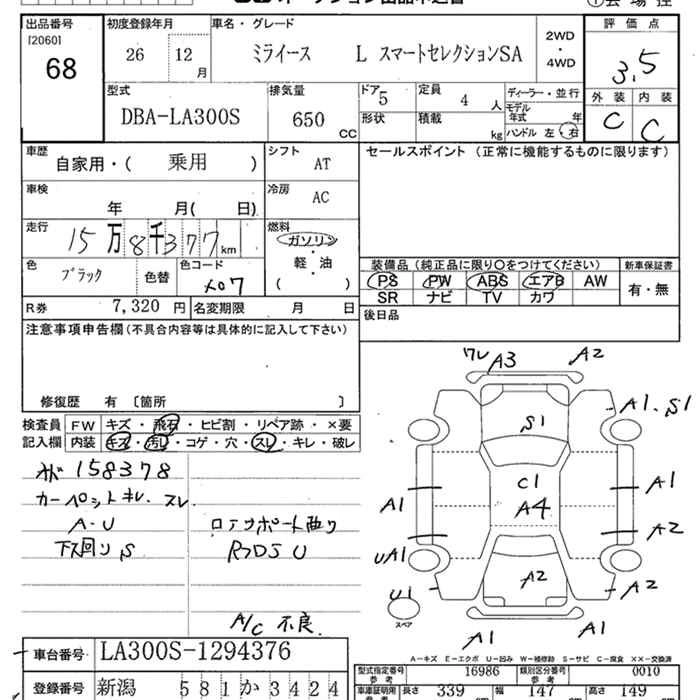 出品番号 初度登録年月 車名・グレード 評価点
[2060] 68 26 12月 ミライース L スマートセレクションSA 2WD・4WD 3.5
型式 排気量 ドア 5 定員 4人 ディーラー・並行 外装 内装
DBA-LA300S 650CC 形状 積載 kg モデル年式 年 C C
ハンドル 左・右
車歴 シフト セールスポイント (正常に機能するものに限ります)
自家用・( 乗用 ) AT
車検 冷房
年 月( 日) AC
走行 燃料
15万8千377km ガソリン
軽・油
( )
色 ブラック 色替 色コード X07
装備品 (純正品に限り〇をつけてください) 新車保証書
PS PW ABS エアB AW 有・無
SR ナビ TV カワ
R券 7,320円 名変期限 月 日 後日品
注意事項申告欄(不具合内容等は具体的に記入して下さい)
修復歴 有 〔箇所 〕
検査員 FW キズ・飛石・ヒビ割・リペア跡・×要
記入欄 内装 キズ・汚レ・コゲ・穴・スレ・キレ・破レ
158378
カーペットキレ. スレ
A・U
下回リS
A/C 不良
ワレ A3 A2
S1 A1. S1
C1
A4
A1 A1
A2
UA1
A2 A2
U1
スペア
A1 A1
A-キズ E-エクボ U-凹み W-補修跡 S-サビ C-腐食 XX-交換済
車台番号 LA300S-1294376
登録番号 新潟 581か3424
型式指定番号 参考 16986 類別区分番号 参考 0010
車庫証明用 参考 長さ 339 幅 147 高さ 149